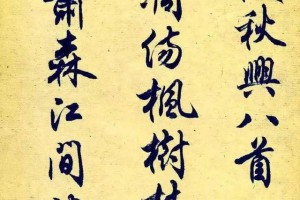 秋興八首
凋傷楓樹林
蕭森江間